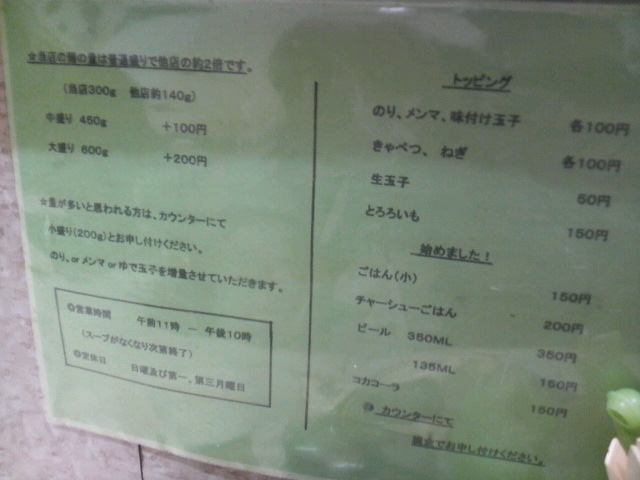 ☆当店の麺の量は普通盛りで他店の約2倍です。
(当店300g 他店約140g)
中盛り 450g +100円
大盛り 600g +200円
☆量が多いと思われる方は、カウンターにて
小盛り(200g)とお申し付けください。
のり、orメンマorゆで玉子を増量させていただきます。
◎営業時間 午前11時 ー 午後10時
(スープがなくなり次第終了)
◎定休日 日曜及び第一、第三月曜日
トッピング
のり、メンマ、味付け玉子 各100円
きゃべつ、ねぎ 各100円
生玉子 50円
とろろいも 150円
始めました!
ごはん(小) 150円
チャーシューごはん 200円
ビール 350ML 350円
135ML 150円
コカコーラ 150円
◎ カウンターにて
現金でお申し付けください。